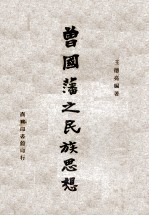 王德亮編著
曾國藩之民族思想
商務印書館印行